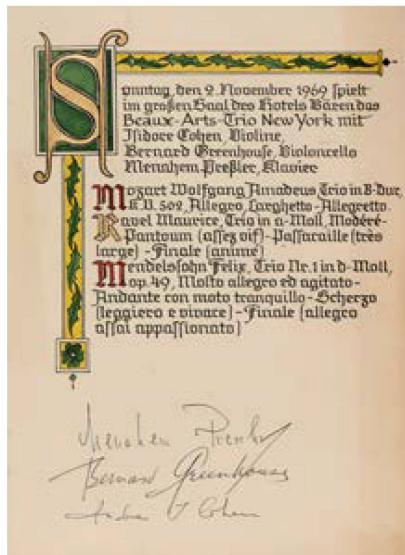 Sonntag, den 2. November 1969 spielt
im großen Saal des Hotels Bären das
Beaux-Arts-Trio New York mit
Isidore Cohen, Violine,
Bernard Greenhouse, Violoncello
Menahem Preßler, Klavier
Mozart Wolfgang Amadeus, Trio in B-Dur,
K.V. 502, Allegro, Larghetto-Allegretto.
Ravel Maurice, Trio in a-Moll, Modéré-
Pantoum (assez vif)-Passacaille (très
large)-Finale (animé)
Mendelssohn Felix, Trio Nr. 1 in d-Moll,
op. 49, Molto allegro ed agitato-
Andante con moto tranquillo-Scherzo
(leggiero e vivace)-Finale (allegro
assai appassionato)
Menahem Pressler
Bernard Greenhouse
Isidore Cohen